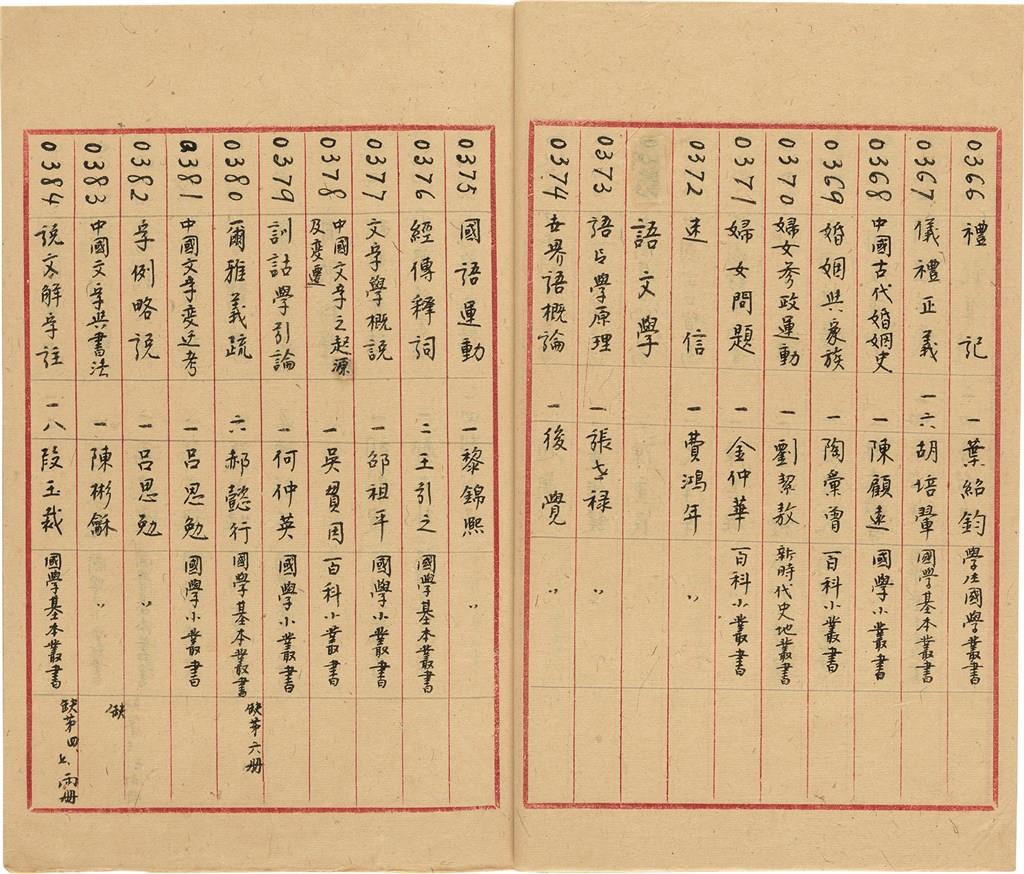 0366 禮記 一 葉紹鈞 學生國學叢書
0367 儀禮正義 一六 胡培翬 國學基本叢書
0368 中國古代婚姻史 一 陳顧遠 國學小叢書
0369 婚姻與家族 一 陶彙曾 百科小叢書
0370 婦女參政運動 一 劉絜敖 新時代史地叢書
0371 婦女問題 一 金仲華 百科小叢書
0372 迷信 一 費鴻年 〃
語文學
0373 語言學原理 一 張世祿 〃
0374 世界語概論 一 後覺 〃
0375 國語運動 一 黎錦熙 〃
0376 經傳释詞 二 王引之 國學基本叢書
0377 文字學概説 一 邵祖平 國學小叢書
0378 中國文字之起源及变遷 一 吳貫因 百科小叢書
0379 訓詁學引論 一 何仲英 國學小叢書
0380 爾雅義疏 六 郝懿行 國學基本叢書 缺第六册
0381 中國文字变迁考 一 呂思勉 國學小叢書
0382 字例略説 一 呂思勉 〃
0383 中國文字與書法 一 陳彬龢 〃 缺
0384 説文解字註 一八 段玉裁 國學基本叢書 缺第四、 兩册